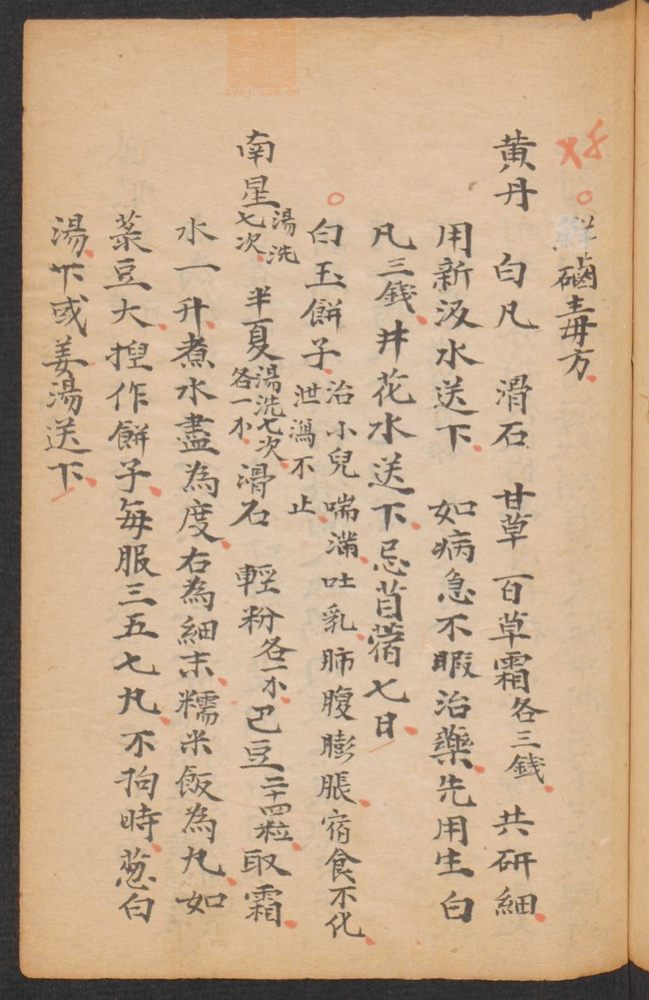 觧磠毒方
黄丹 白凡 滑石 甘草 百草霜各三錢 共研細
用新汲水送下 如病急不暇治藥先用生白
凡三錢井花水送下忌苜蓿七日
白玉餅子治小兒喘滿吐乳肺腹膨脹宿食不化泄瀉不止
南星湯洗七次半夏湯洗七次各一小滑石 輕粉各一小巴豆二十四粒取霜
水一升煮水盡為度右為細末糯米飯為丸如
菉豆大揑作餅子每服三五七丸不拘時葱白
湯下或姜湯送下